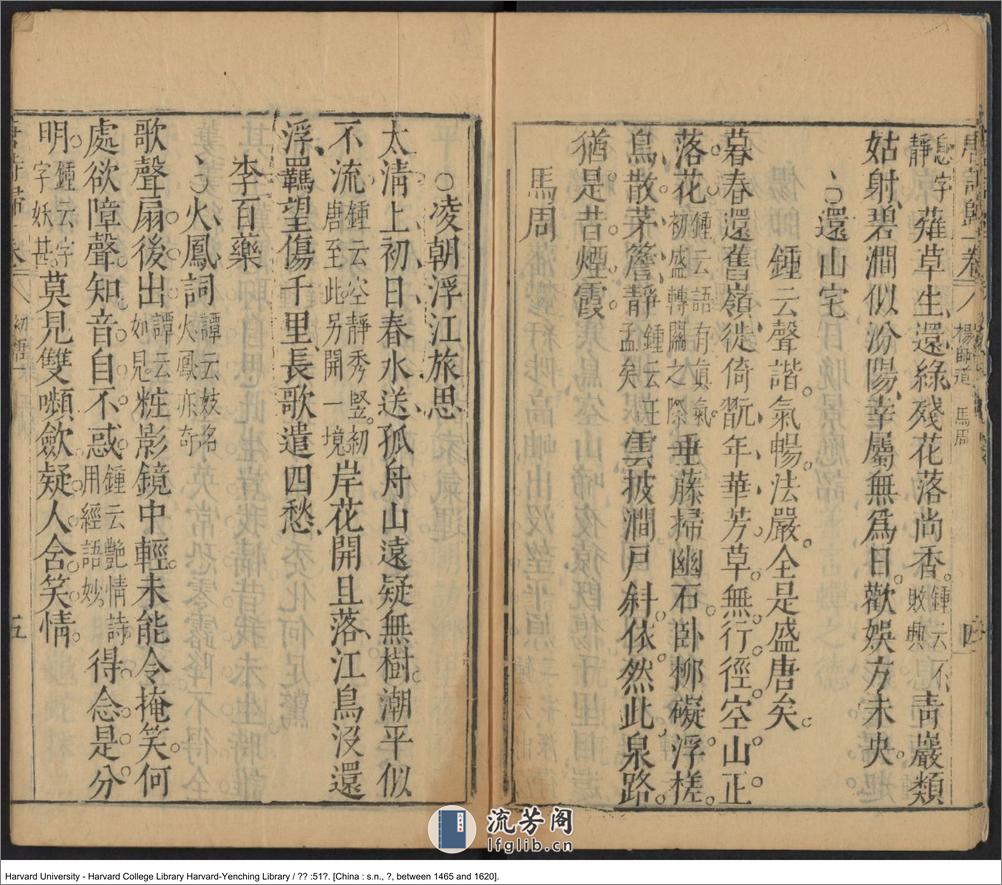 唐詩歸卷一 八 楊師道 馬周 四
息字靜薙草生還綠殘花落尚香鍾云不敗興青巖類
姑射碧澗似汾陽幸屬無為日歡娛方未央
還山宅
鍾云聲諧氣暢法嚴全是盛唐矣
暮春還舊嶺徙倚翫年華芳草無行徑空山正
落花鍾云語有慎氣初盛轉關之際垂藤掃幽石臥柳礙浮槎
鳥散茅簷靜鍾云在孟矣雲披澗戶斜依然此泉路
猶是昔煙霞
馬周
凌朝浮江旅思
太清上初日春水送孤舟山遠疑無樹潮平似
不流鍾云空靜秀豎初唐至此另開一境岸花開且落江鳥沒還
浮羈望傷千里長歌遣四愁
李百藥
火鳳詞譚云妓名火鳳亦奇
歌聲扇後出譚云妙見粧影鏡中輕未能令掩笑何
處欲障聲知音自不惑鍾云艷情詩用經語妙得念是分
明鍾云字字妖甚莫見雙嚬歛疑人含笑情
唐詩歸 初唐一 五
流芳阁
lfglib.cn
Harvard University - Harvard College Library Harvard-Yenching Library / ?? :51?. [China : s.n., ?, between 1465 and 1620].